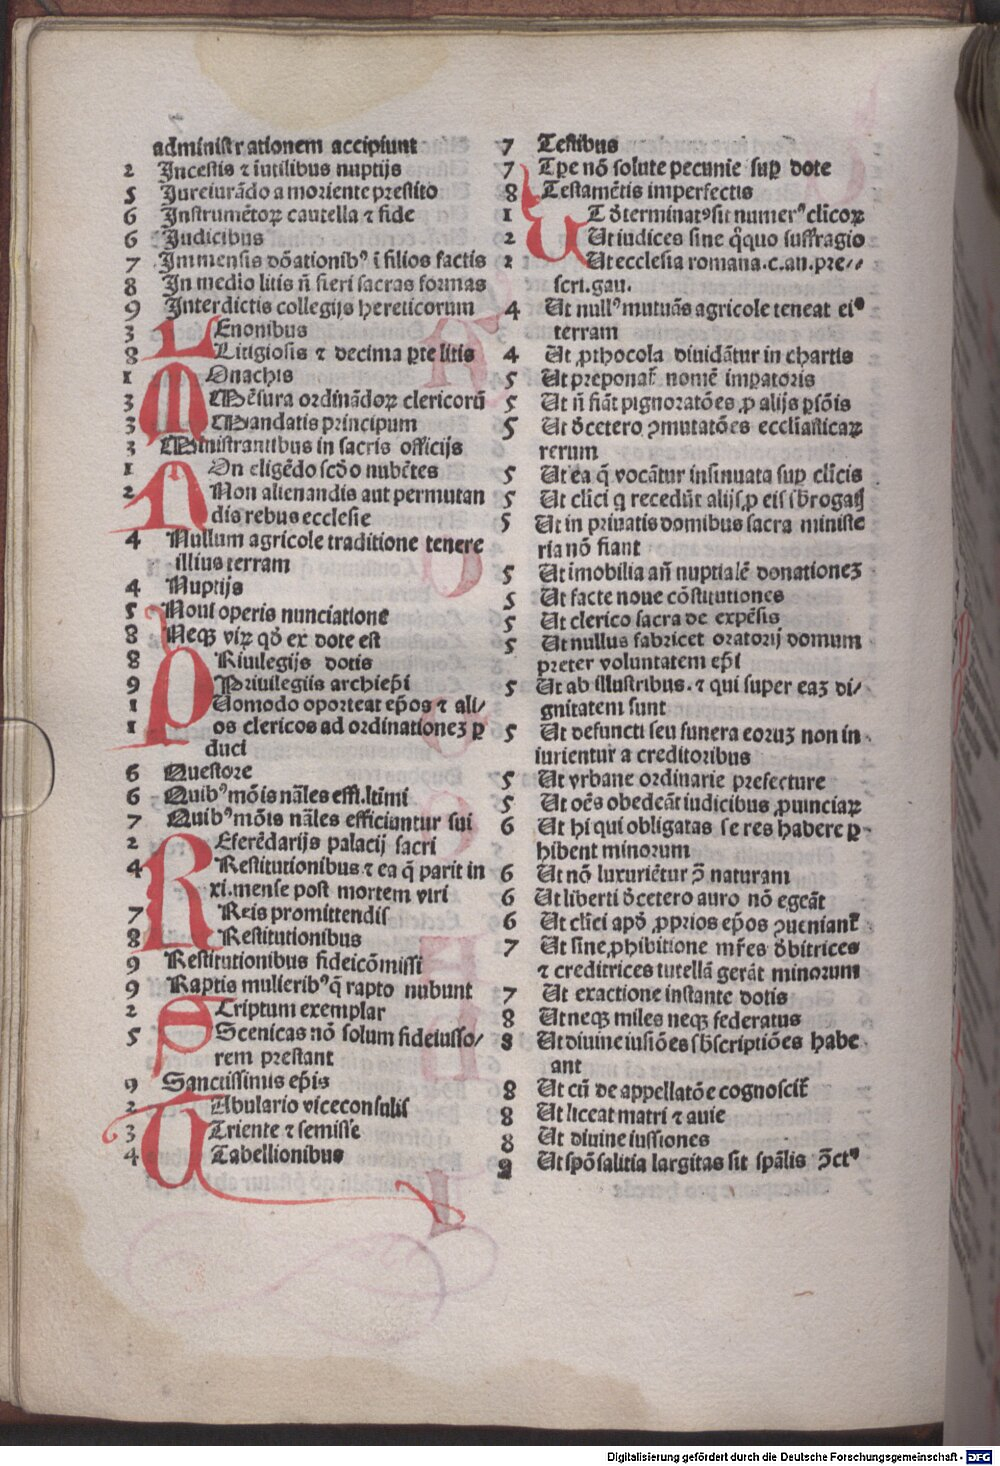 administrationem accipiunt
2 Incestis ⁊ īutilibus nuptijs
5 Jureiurādo a moriente prestito
6 Instrumētoꝝ cautella ⁊ fide
6 Judicibus
7 Immensis dōationibꝰ ī filios factis
8 In medio litis n̄ fieri sacras formas
9 Interdictis collegijs hereticorum
3 LEnonibus
8 Litigiosis ⁊ decima ꝑte litis
1 MOnachis
3 Mēsura ordinādoꝝ clericorū
3 Mandatis principum
3 Ministrantibus in sacris officijs
1 NOn eligēdo scd̄o nubētes
2 Non alienandis aut permutan
dis rebus ecclesie
4 Nullum agricole traditione tenere
illius terram
4 Nuptijs
5 Noui operis nunciatione
8 Neqꝫ viꝝ qd̄ ex dote est
8 PRiuilegijs dotis
9 Priuilegiis archiep̄i
1 QUomodo oporteat ep̄os ⁊ ali/
1 os clericos ad ordinationeꝫ ꝑ
duci
6 Questore
6 Quibꝰ mōis nāles effi.ltīmi
7 Quibꝰ mōis nāles efficiuntur sui
2 REferēdarijs palacij sacri
4 Restitutionibus ⁊ ea q̄ parit in
xi.mense post mortem viri
7 Reis promittendis
8 Restitutionibus
9 Restitutionibus fideicōmissi
9 Raptis mulieribꝰ q̄ rapto nubunt
2 SCriptum exemplar
5 Scenicas nō solum fideiusso/
rem prestant
9 Sanctissimis ep̄is
2 TAbulario viceconsulis
3 Triente ⁊ semisse
4 Tabellionibus
7 Testibus
7 Tꝑe nō solute pecunie suꝑ dote
8 Testamētis imperfectis
1 UT d̄terminatꝰ sit numerꝰ cl̄icoꝝ
2 Ut iudices sine q̄quo suffragio
2 Ut ecclesia romana.c.an.pre//
scri.gau.
4 Ut nullꝰ mutuās agricole teneat eiꝰ
terram
4 Ut ꝓthocola diuidātur in chartis
5 Ut preponat̄ nomē imꝑatoris
5 Ut n̄ fiāt pignoratōes ꝓ alijs ꝑsōis
5 Ut d̄cetero ꝯmutatōes eccliasticaꝝ
rerum
5 Ut ea q̄ vocātur insinuata suꝑ cl̄icis
5 Ut cl̄ici q recedūt alijs ꝓ eis sb̄rogatꝭ
5 Ut in priuatis domibus sacra ministe
ria nō fiant
5 Ut imobilia an̄ nuptialē donationeꝫ
5 Ut facte noue cōstitutiones
5 Ut clerico sacra de expēsis
5 Ut nullus fabricet oratorij domum
preter voluntatem ep̄i
5 Ut ab illustribus.⁊ qui super eaꝫ di/
gnitatem sunt
5 Ut defuncti seu funera eoruꝫ non in
iurientur a creditoribus
5 Ut vrbane ordinarie prefecture
5 Ut oēs obedeāt iudicibus ꝓuinciaꝝ
6 Ut hi qui obligatas se res habere ꝑ
hibent minorum
6 Ut nō luxuriētur ꝯ̄ naturam
6 Ut liberti d̄cetero auro nō egeāt
6 Ut cl̄ici apd̄ ꝓprios ep̄os ꝯueniant̄
7 Ut sine ꝓhibitione mr̄es d̄bitrices
⁊ creditrices tutellā gerāt minorum
7 Ut exactione instante dotis
8 Ut neqꝫ miles neqꝫ federatus
8 Ut diuine iusiōes sb̄scriptiōes habe
ant
8 Ut cū de appellatōe cognoscit̄
8 Ut liceat matri ⁊ auie
8 Ut diuine iussiones
9 Ut spōsalitia largitas sit spālis ꝯ̄ctꝰ
Digitalisierung gefördert durch die Deutsche Forschungsgemeinschaft - DFG